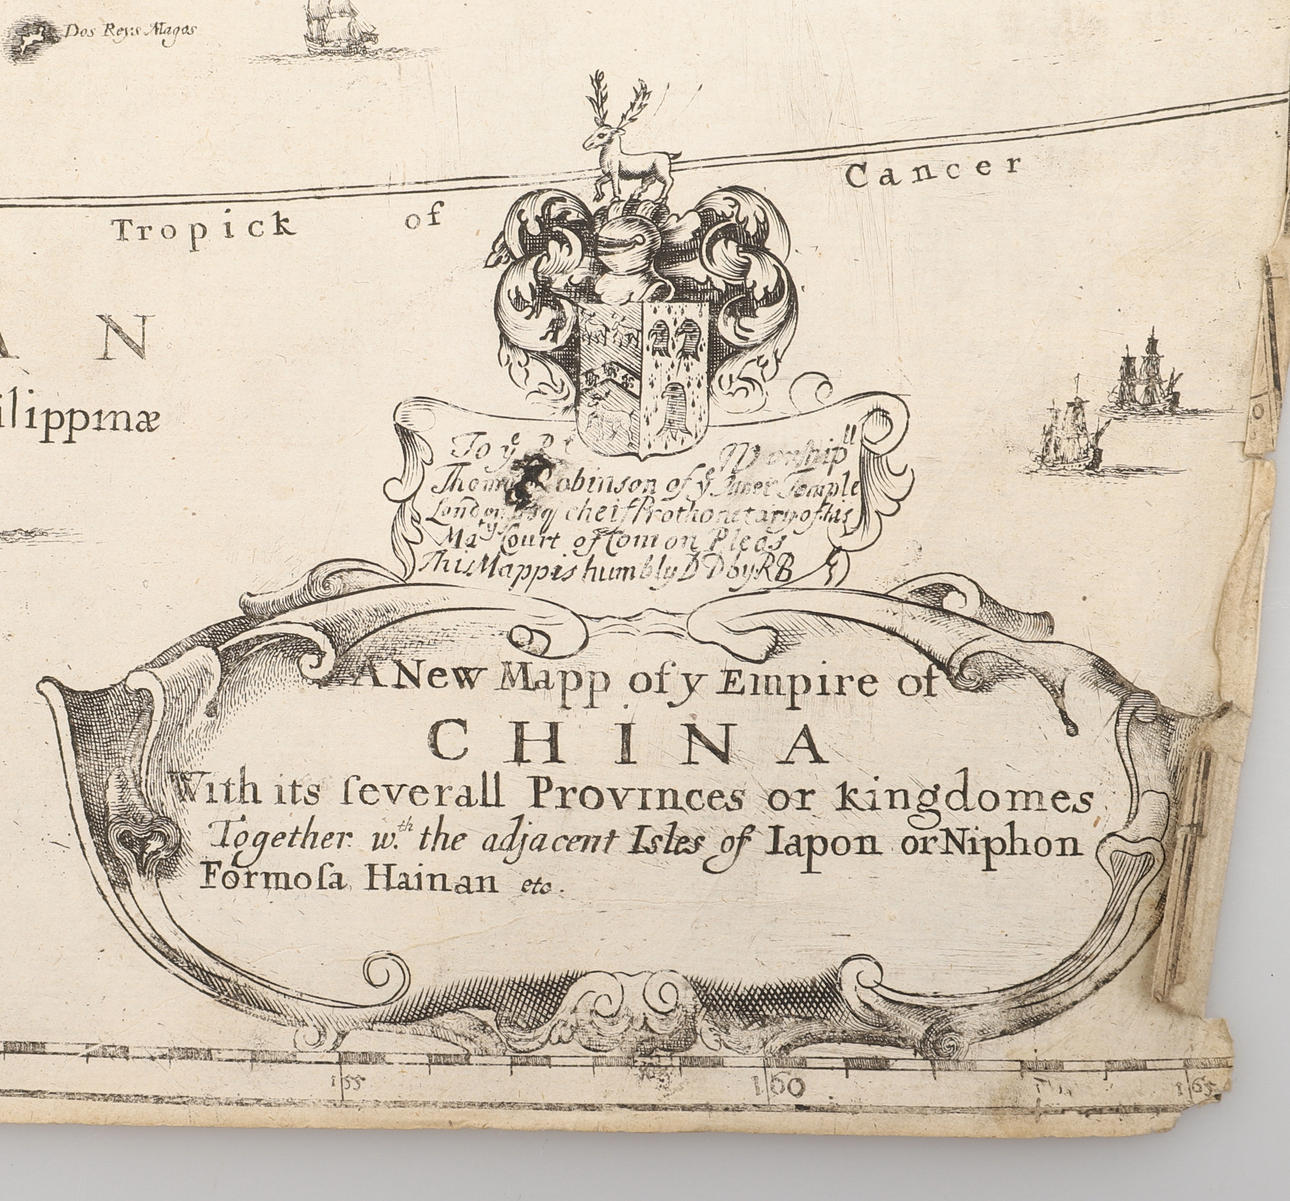 Dos Reys Magos
Cancer
Tropick of
A N
ilippinæ
To yͤ Rᵗ Worshipˡˡ
Thom Robinson of yͤ Iner Temple
London Esq cheif Prothonetary of his
Maᵗʸˢ Court of Comon Pleas
This Mapp is humbly D D by RB
A New Mapp of y Empire of
CHINA
With its ſeverall Provinces or kingdomes
Together w.ᵗʰ the adjacent Isles of Iapon or Niphon
Formoſa, Hainan etc.
0
155
160
165